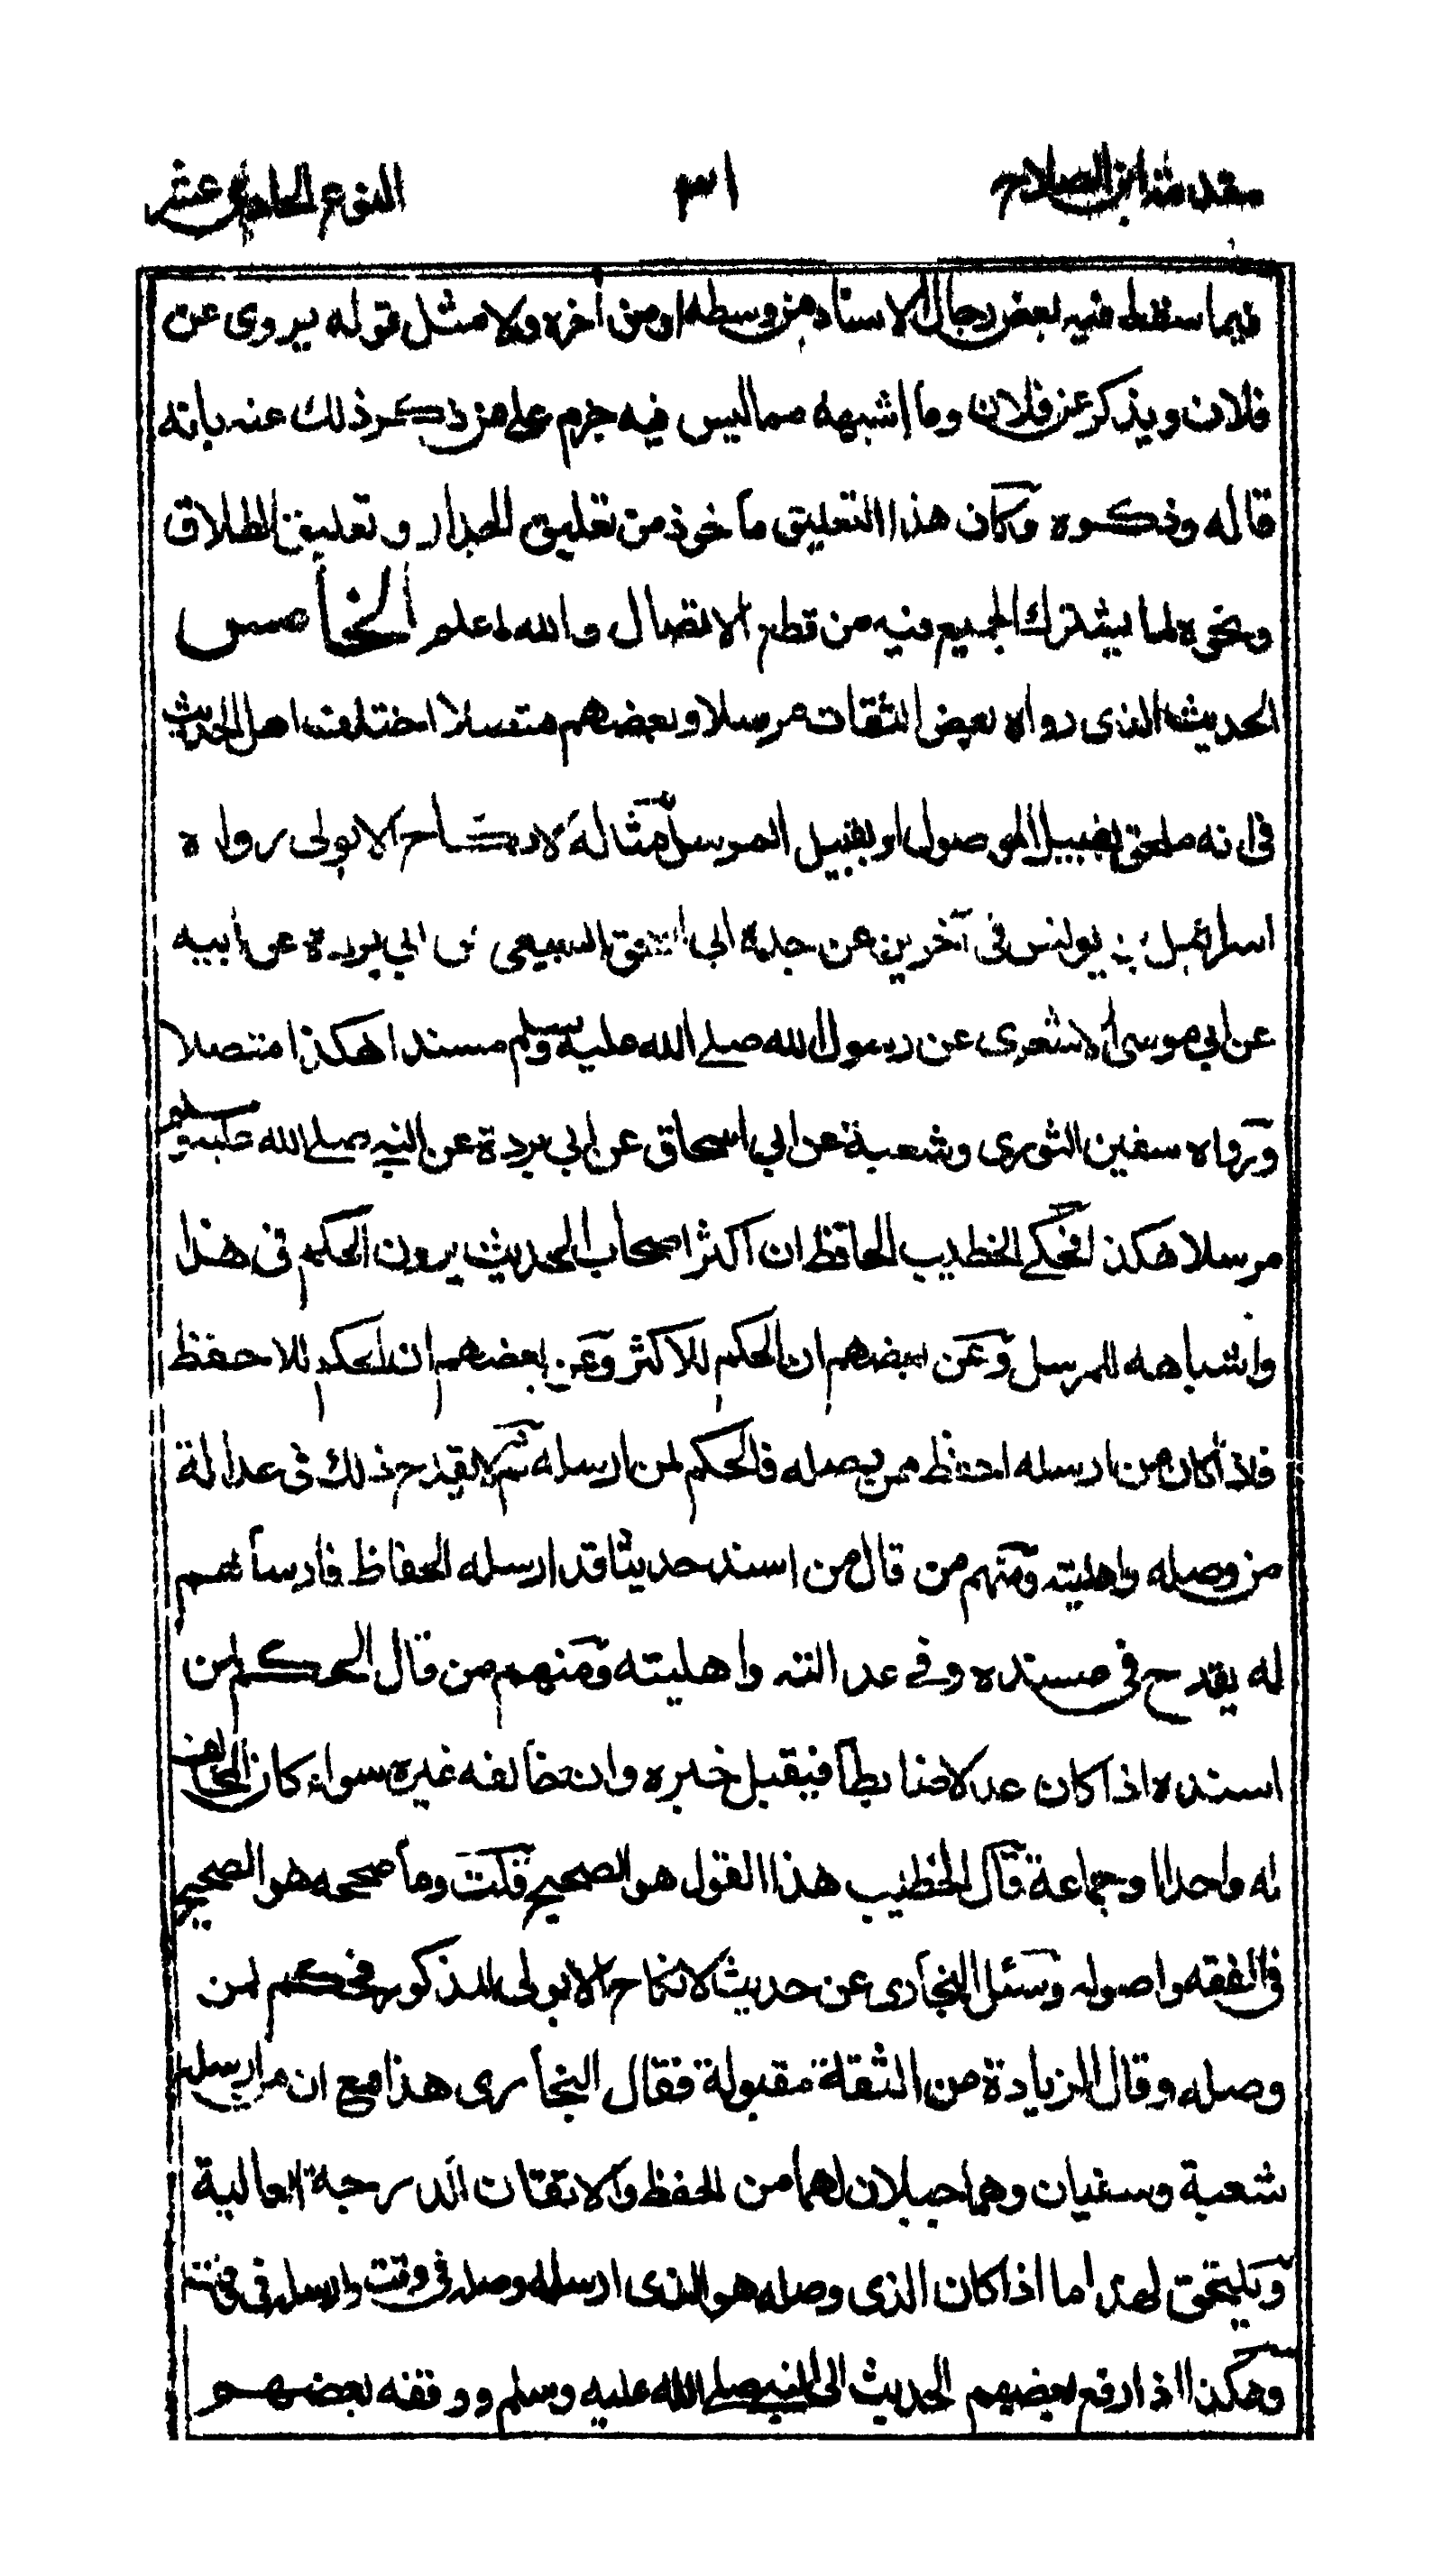 مقدمة ابن الصلاح ٣١ النوع الحادي عشر
فيما سقط فيه بعض رجال الاسناد من وسطه او من آخره ولا مثل قوله يروى عن
فلان ويذكر عن فلان وما اشبهه مما ليس فيه جزم على من ذكر ذلك عنه بانه
قاله وذكره وكان هذا التعليق ماخوذ من تعليق الجدار وتعليق الطلاق
ونحوه لما يشترك الجميع فيه من قطع الاتصال والله اعلم الخامس
الحديث الذى رواه بعض الثقات مرسلا وبعضهم متصلا اختلف اهل الحديث
فى انه ملحق بقبيل الموصول او بقبيل المرسل مثاله لا نكاح الا بولى رواه
اسرائيل بن يونس فى آخرين عن جده ابى اسحق السبيعى عن ابي بردة عن ابيه
عن ابي موسى الاشعرى عن رسول الله صلے الله عليه وسلم مسندا هكذا متصلا
ورواه سفين الثورى وشعبة عن ابي اسحاق عن ابي بردة عن النبي صلے الله عليه وسلم
مرسلا هكذا فحكے الخطيب الحافظ ان اكثر اصحاب الحديث يرون الحكم فى هذا
واشباهه للمرسل وعن بعضهم ان الحكم للاكثر وعن بعضهم ان الحكم للاحفظ
فاذا كان من ارسله احفظ ممن يصله فالحكم لمن ارسله ثم لا يقدح ذلك فى عدالة
من وصله واهليته ومنهم من قال من اسند حديثا قد ارسله الحفاظ فارسالهم
له يقدح فى مسنده وفے عدالته واهليته ومنهم من قال الحكم لمن
اسنده اذا كان عدلا ضابطا فيقبل خبره وان خالفه غيره سواء كان المخالف
له واحدا او جماعة قال الخطيب هذا القول هو الصحيح قلت وما صححه هو الصحيح
فى الفقه واصوله وسئل البخارى عن حديث لا نكاح الا بولى المذكور فحكم لمن
وصله وقال الزيادة من الثقة مقبولة فقال البخارى هذا مع ان من ارسله
شعبة وسفيان وهما جبلان لهما من الحفظ والاتقان الدرجة العالية
ويلتحق لهذا ما اذا كان الذى وصله هو الذى ارسله وصله فى وقت وارسله فى وقت
وهكذا اذا رفع بعضهم الحديث الى النبي صلے الله عليه وسلم ووقفه بعضهم